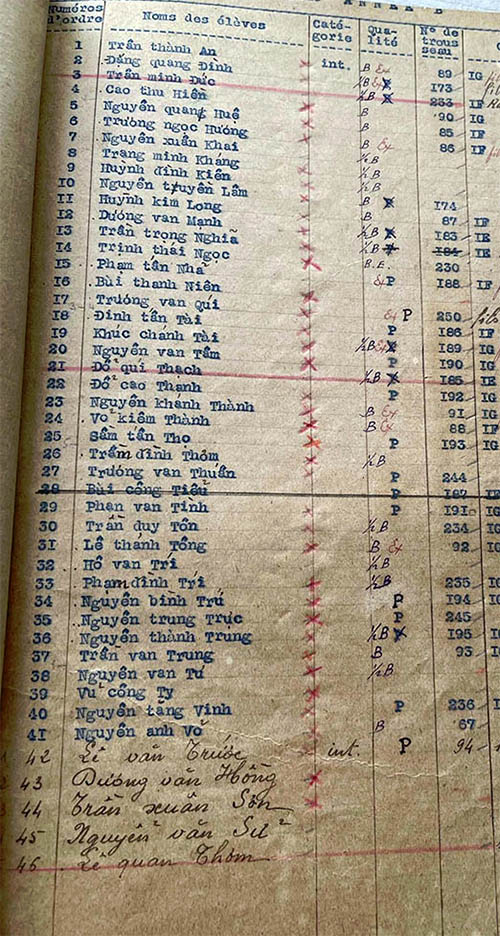 ANNEE
Numéros d'ordre Noms des élèves Caté- gorie Qua- lité N° de trous seau
1 Trần thành An
2 Đặng quang Đính int. B Ex 89 IG
3 Trần minh Đức ½B Ex 173
4 Cao thu Hiền ½B 233 IF
5 Nguyễn quang Huệ B 90 IG
6 Trương ngọc Hướng 85 IF
7 Nguyễn xuân Khai B Ex 86 IF
8 Trang minh Kháng ½B
9 Huỳnh đình Kiên ½B
10 Nguyễn truyền Lắm ½B
11 Huỳnh kim Long B 174
12 Dương van Mạnh B 87 IF
13 Trần trọng Nghĩa ½B 183 IE
14 Trịnh thái Ngọc ½B 184 IE
15 Phạm tấn Nhã B.E. 230
16 Bùi thanh Niên Ex P 188 IF
17 Trương van Quí
18 Đinh tấn Tài Ex P 250
19 Khúc chánh Tài P 186 IF
20 Nguyễn van Tấm ½B Ex 189 IG
21 Đổ qui Thạch P 190 IG
22 Đổ cao Thạnh ½B 185 IE
23 Nguyễn khánh Thành P 192 IG
24 Võ kiêm Thành B Ex 91 IG
25 Sầm tấn Thọ B Ex 88 IF
26 Trầm đình Thơm P 193 IG
27 Trương van Thuấn ½B
28 Bùi công Tiểu P 244
29 Phan van Tình P 187 IF
30 Trần duy Tôn P 191 IG
31 Lê thánh Tông ½B 234 IG
32 Hồ van Trí B Ex 92 IG
33 Phạm đình Trí ½B
34 Nguyễn bỉnh Trứ ½B 235 IG
35 Nguyễn trung Trực P 194 IG
36 Nguyễn thành Trung P 245
37 Trần van Trung ½B 195 IG
38 Nguyễn van Tư B 93 IG
39 Vũ công Ty ½B
40 Nguyễn tăng Vinh P 236
41 Nguyễn anh Võ B 67
42 Lê văn Trước int. P 94
43 Dương văn Hồng
44 Trần xuân Sơn
45 Nguyễn văn Sử
46 Lê quan Thơm